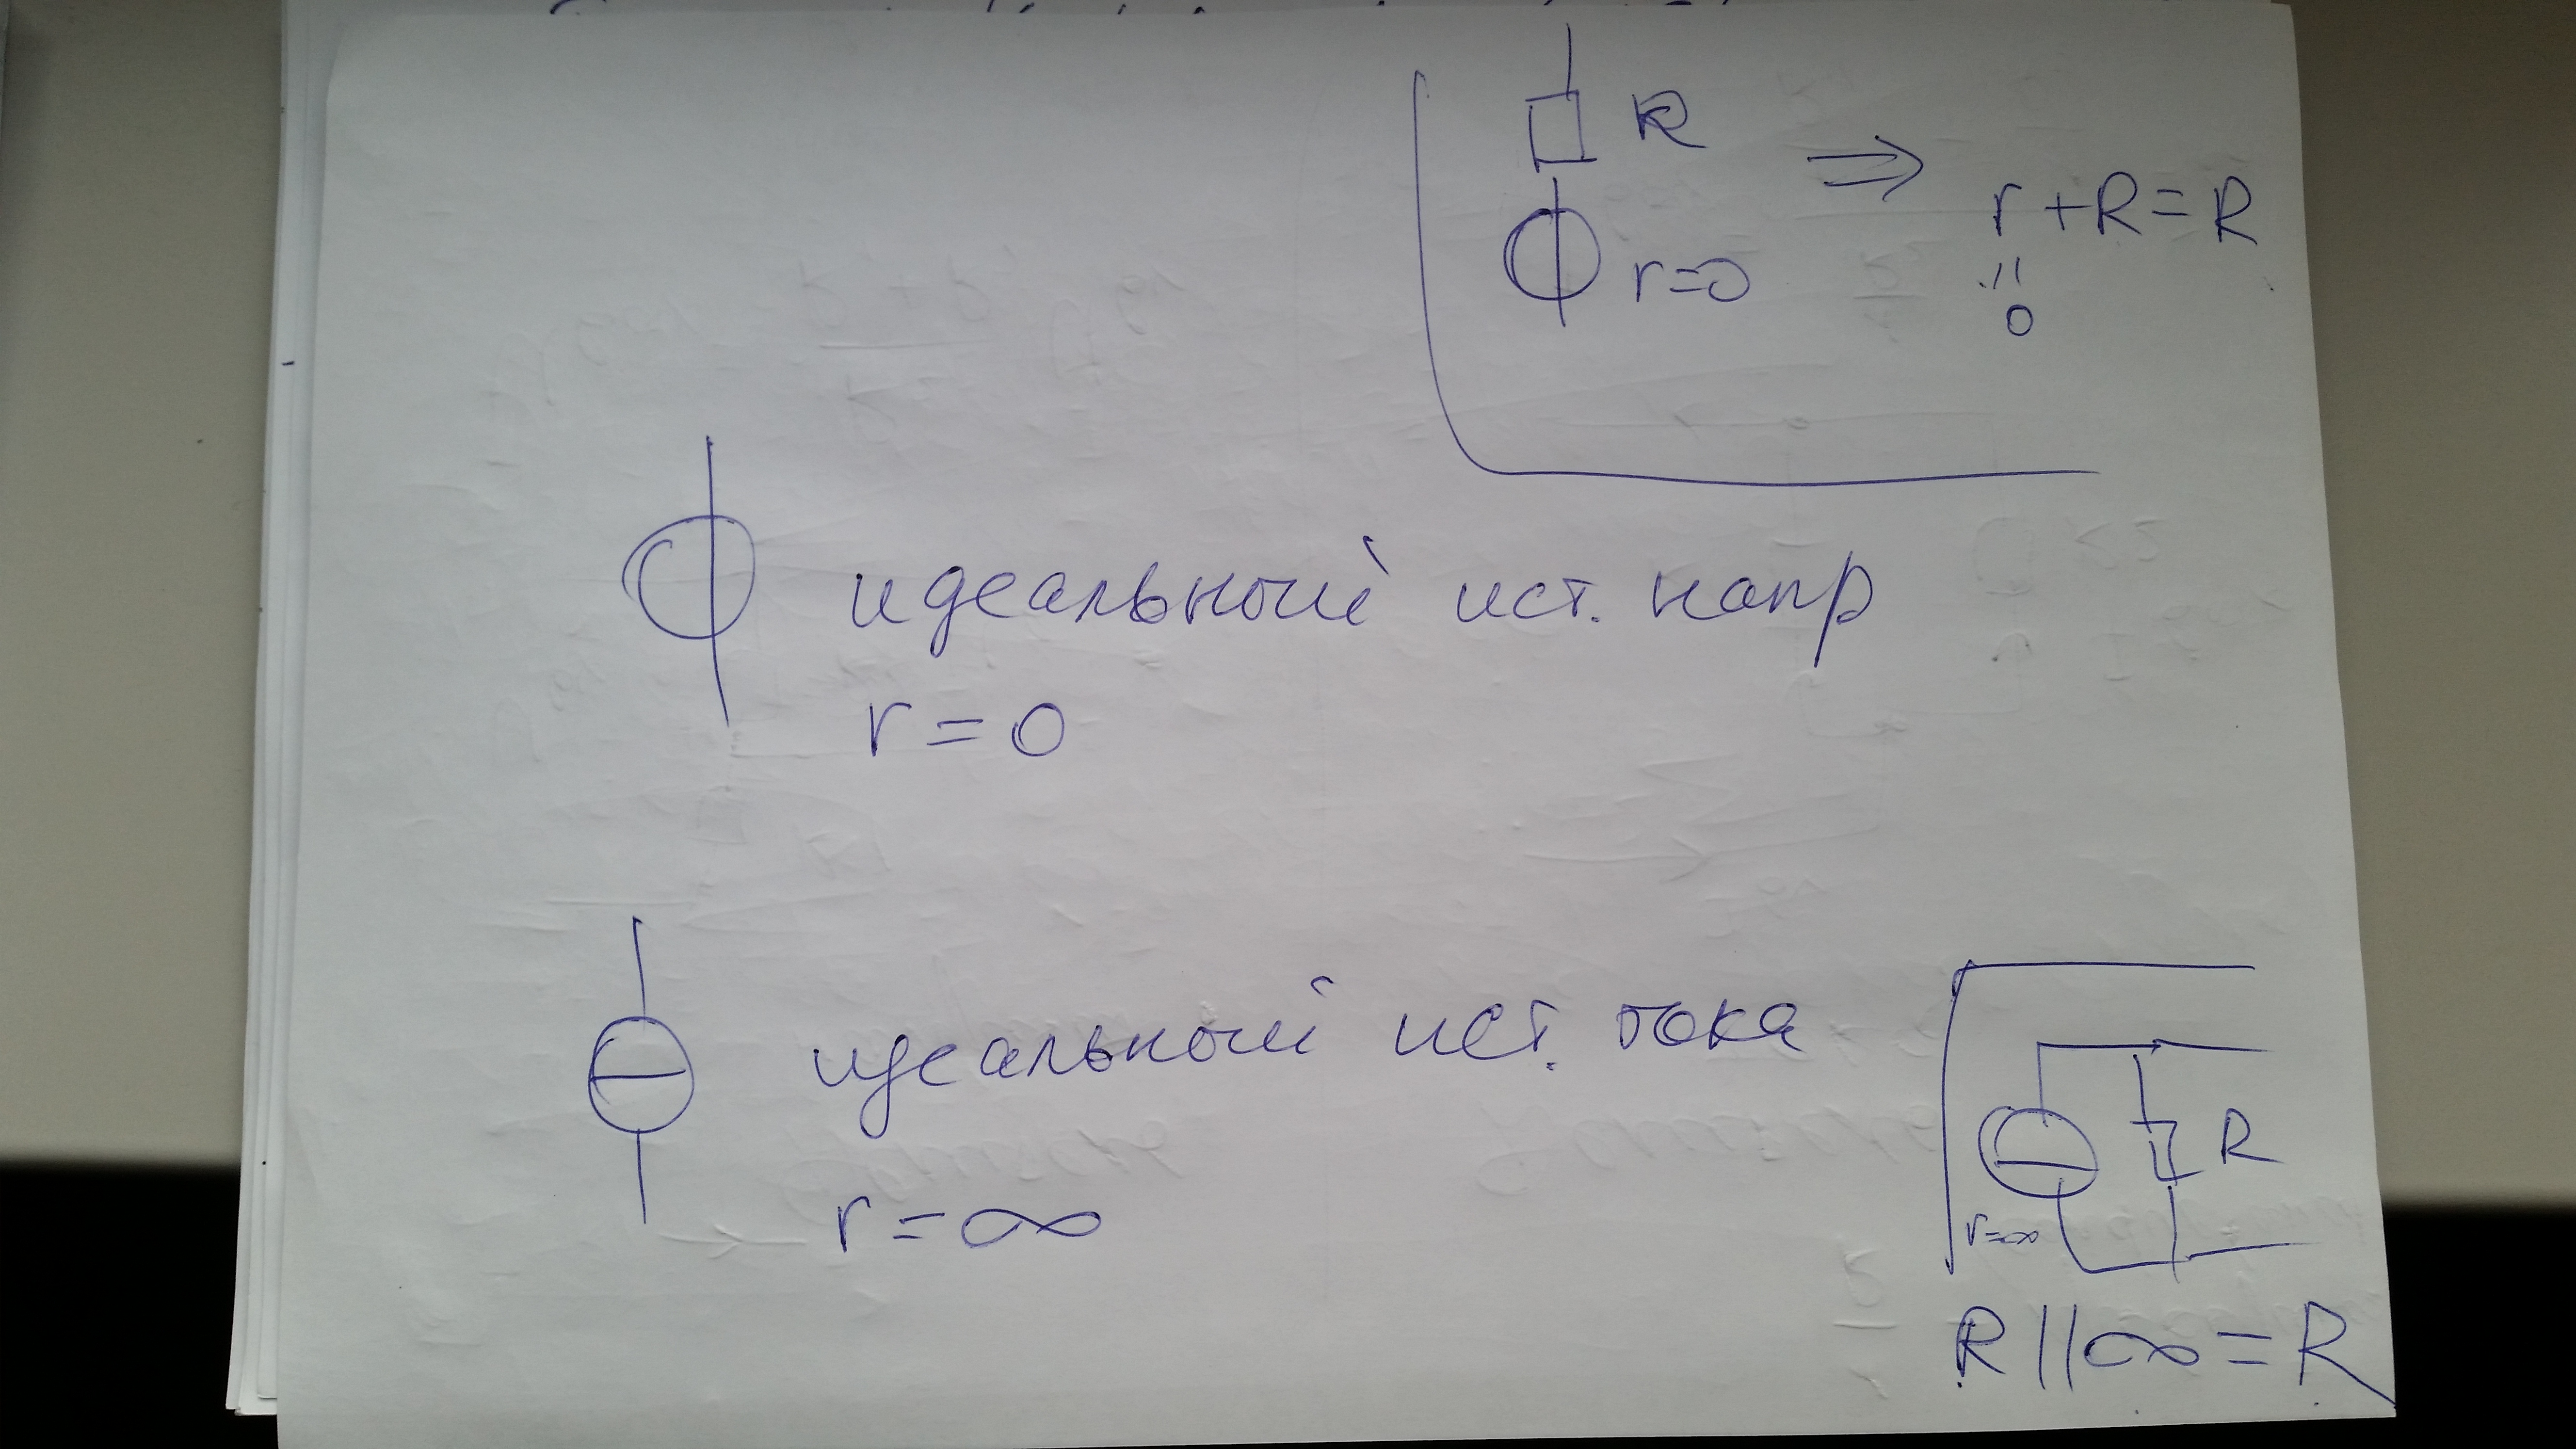 R
r + R = R
r=0
=
0
идеальный ист. напр
r = 0
идеальный ист. тока
R
r = ∞
r=∞
R || ∞ = R